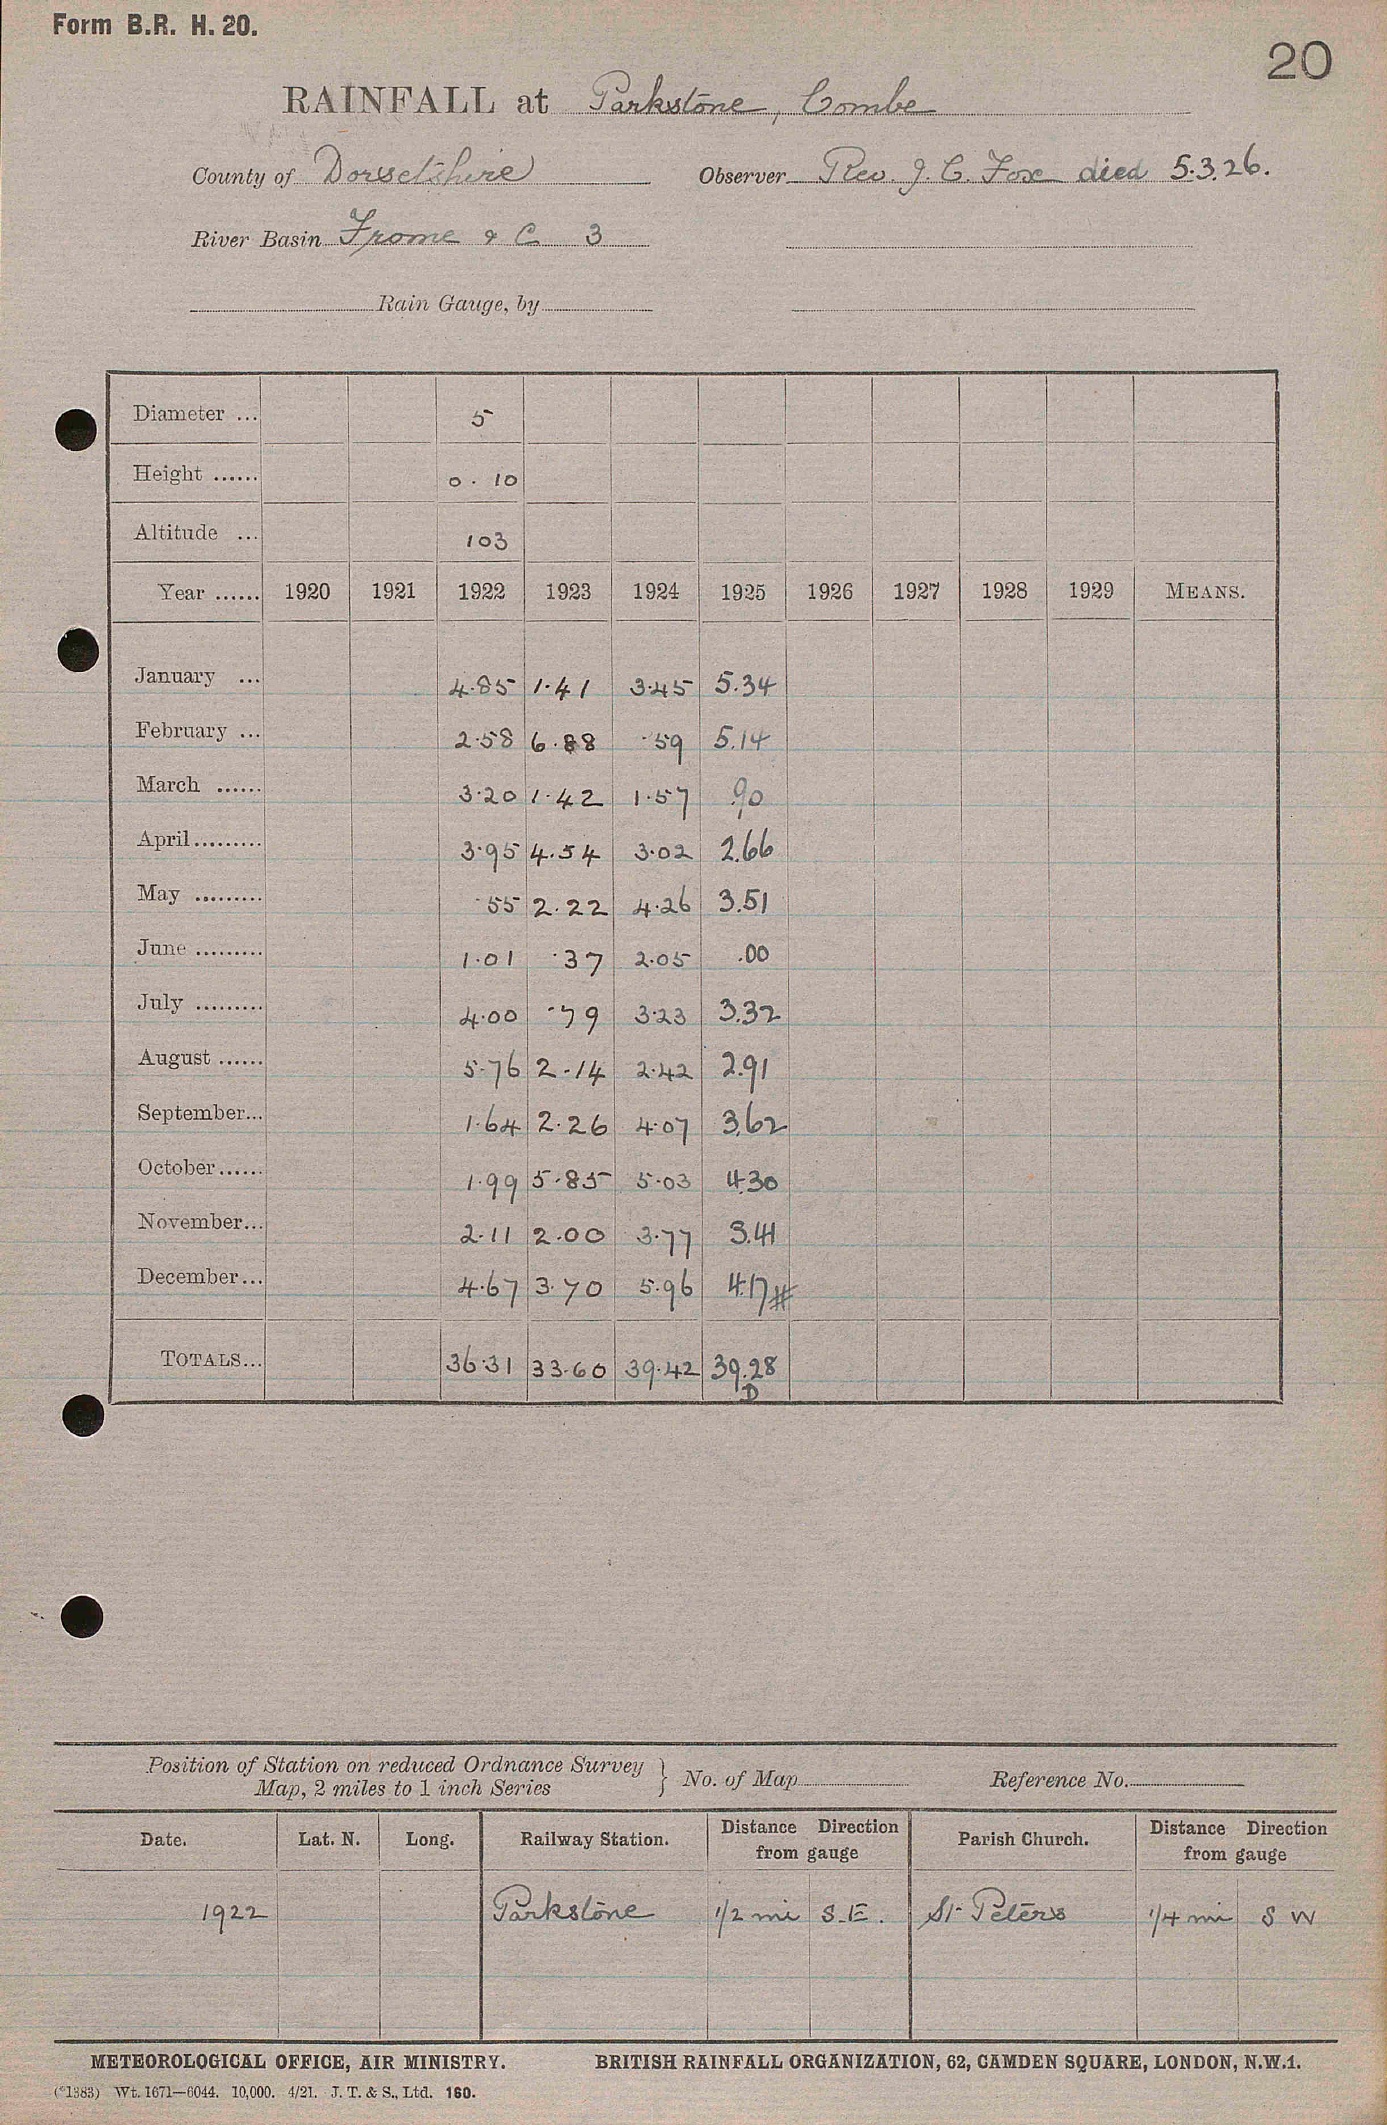 Form B.R. H. 20.
20
RAINFALL at Parkstone, Combe
County of Dorsetshire Observer Rev. J. C. Fox died 5.3.26.
River Basin Frome & C 3
Rain Gauge, by
Diameter ... 5
Height ...... 0 · 10
Altitude ... 103
Year ...... 1920 1921 1922 1923 1924 1925 1926 1927 1928 1929 MEANS.
January ... 4·85 1·41 3·45 5.34
February ... 2·58 6·88 ·59 5.14
March ...... 3·20 1·42 1·57 .90
April......... 3·95 4·54 3·02 2.66
May ......... ·55 2·22 4·26 3.51
June ......... 1·01 ·37 2·05 .00
July ......... 4·00 ·79 3·23 3.32
August ...... 5·76 2·14 2·42 2.91
September... 1·64 2·26 4·07 3.62
October...... 1·99 5·85 5·03 4.30
November... 2·11 2·00 3·77 3.41
December... 4·67 3·70 5·96 4.17#
TOTALS... 36·31 33·60 39·42 39.28
D
Position of Station on reduced Ordnance Survey
Map, 2 miles to 1 inch Series } No. of Map Reference No.
Date. Lat. N. Long. Railway Station. Distance Direction from gauge Parish Church. Distance Direction from gauge
1922 Parkstone 1/2 mi S.E. St Peters 1/4 mi S W
METEOROLOGICAL OFFICE, AIR MINISTRY. BRITISH RAINFALL ORGANIZATION, 62, CAMDEN SQUARE, LONDON, N.W.1.
(*1383) Wt. 1671—6044. 10,000. 4/21. J. T. & S., Ltd. 160.